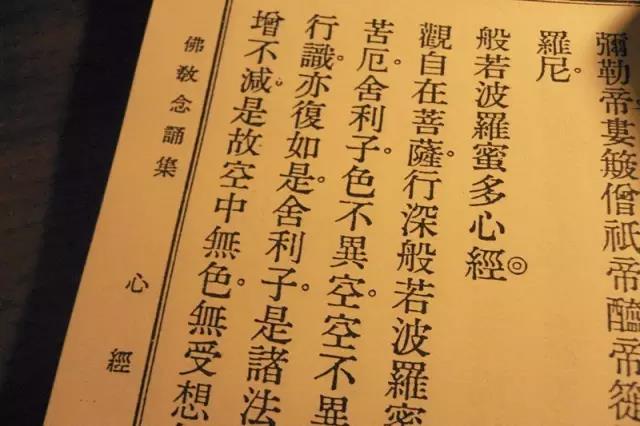 彌勒帝婁僧祇帝醯帝簁
羅尼。
般若波羅蜜多心經◎
觀自在菩薩。行深般若波羅蜜
苦厄。舍利子。色不異空。空不異
行識。亦復如是。舍利子。是諸法
增不減。是故空中無色。無受想
佛敎念誦集 心經